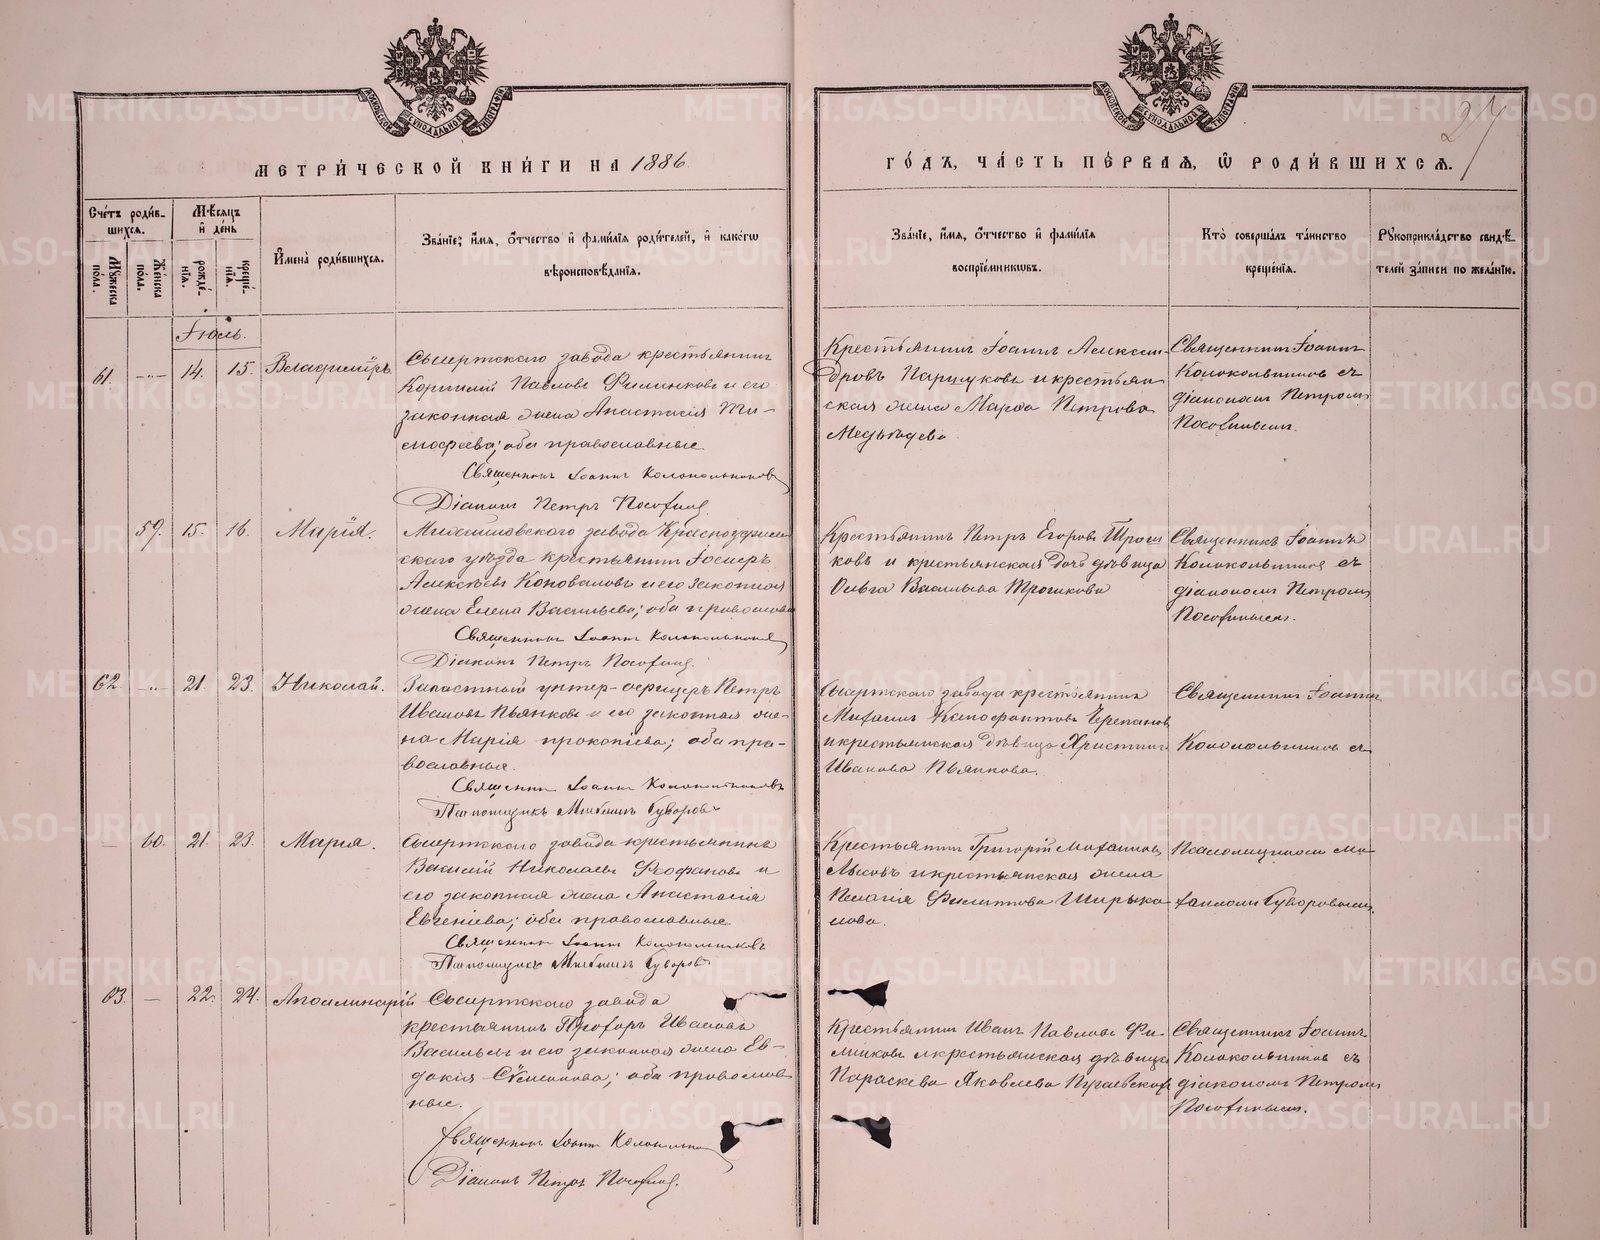 МЕТРИ́ЧЕСКОЙ КНИ́ГИ НА 1886
ГО́ДЪ, ЧА́СТЬ ПЕ́РВАѦ, Ѡ РОДИ́ВШИХСѦ.
27
Сче́тъ роди́в-
шихсѧ.
Мѣ́сѧцъ
и҆ де́нь
Мꙋ́жеска
по́ла.
Же́нска
по́ла.
рожде́-
нїѧ.
креще́-
нїѧ.
И҆мена̀ роди́вшихсѧ.
Зва́нїе, и҆́мѧ, ѻ҆́тчество и҆ фамı́лїѧ роди́телей, и҆ како́гѡ
вѣроисповѣ́данїѧ.
Зва́нїе, и҆́мѧ, ѻ҆́тчество и҆ фамı́лїѧ
воспрїе́мникѡвъ.
Кто̀ соверша́лъ та́инство
креще́нїѧ.
Рꙋкоприкла́дство свидѣ́-
телей за́писи по жела́нїю.
Іюль.
61. -"- 14. 15. Владиміръ
Сысертскаго завода крестьянинъ
Корнилій Павловъ Филинковъ и его
законная жена Анастасія Ти-
мофеева; оба православные.
Священникъ Іоаннъ Колокольниковъ
Діаконъ Петръ
Крестьянинъ Іоаннъ Алексан-
дровъ Паршуковъ и крестьян-
ская жена Марфа Петрова
Медвѣдева.
Священникъ Іоаннъ
Колокольниковъ съ
діакономъ Петромъ
59. 15. 16. Марія.
Михайловского завода Красноуфим-
скаго уѣзда крестьянинъ
Алексѣевъ Коноваловъ и его законная
жена Елена Васильева; оба православн
Священникъ Іоаннъ Колокольниковъ
Діаконъ Петръ
Крестьянинъ Петръ Егоровъ Трош
ковъ и крестьянская дочь дѣвица
Ольга Васильева Трошкова
Священникъ Іоаннъ
Колокольниковъ съ
діакономъ Петромъ
62. -"- 21. 23. Николай.
Запасный унтер-офицеръ Петръ
Ивановъ Пьянковъ и его законная же-
на Марія Прокопіева; оба пра-
вославные.
Священникъ Іоаннъ Колокольниковъ
Псаломщикъ Михаилъ Суворовъ
Сысертскаго завода крестьянинъ
Михаилъ Ксенофонтовъ Черепановъ
и крестьянская дѣвица Христина
Иванова Пьянкова.
Священникъ Іоаннъ
Колокольниковъ съ
60. 21. 23. Мария.
Сысертского завода крестьянинъ
Василій Николаевъ Феофановъ и
его законная жена Анастасія
Евгеніева; оба православные
Священникъ Іоаннъ Колокольниковъ
Псаломщикъ Михаилъ Суворовъ
Крестьянинъ Григорій Михайловъ
и крестьянская жена
Пелагія Филиппова Ширыка-
лова.
Псаломщикомъ Ми-
хаиломъ Суворовымъ.
63. — 22. 24. Аполлинарій
Сысертского завода
крестьянинъ Прохоръ Ивановъ
Васильевъ и его законная жена Ев-
докія Сѵмеонова; оба православ
ные.
Священникъ Іоаннъ Колокольн
Діаконъ Петръ
Крестьянинъ Иванъ Павловъ Фи-
линковъ и крестьянская дѣвица
Параскева Яковлева Пугаевская
Священникъ Іоаннъ
Колокольниковъ съ
діакономъ Петромъ
METRIKI.GASO-URAL.RU